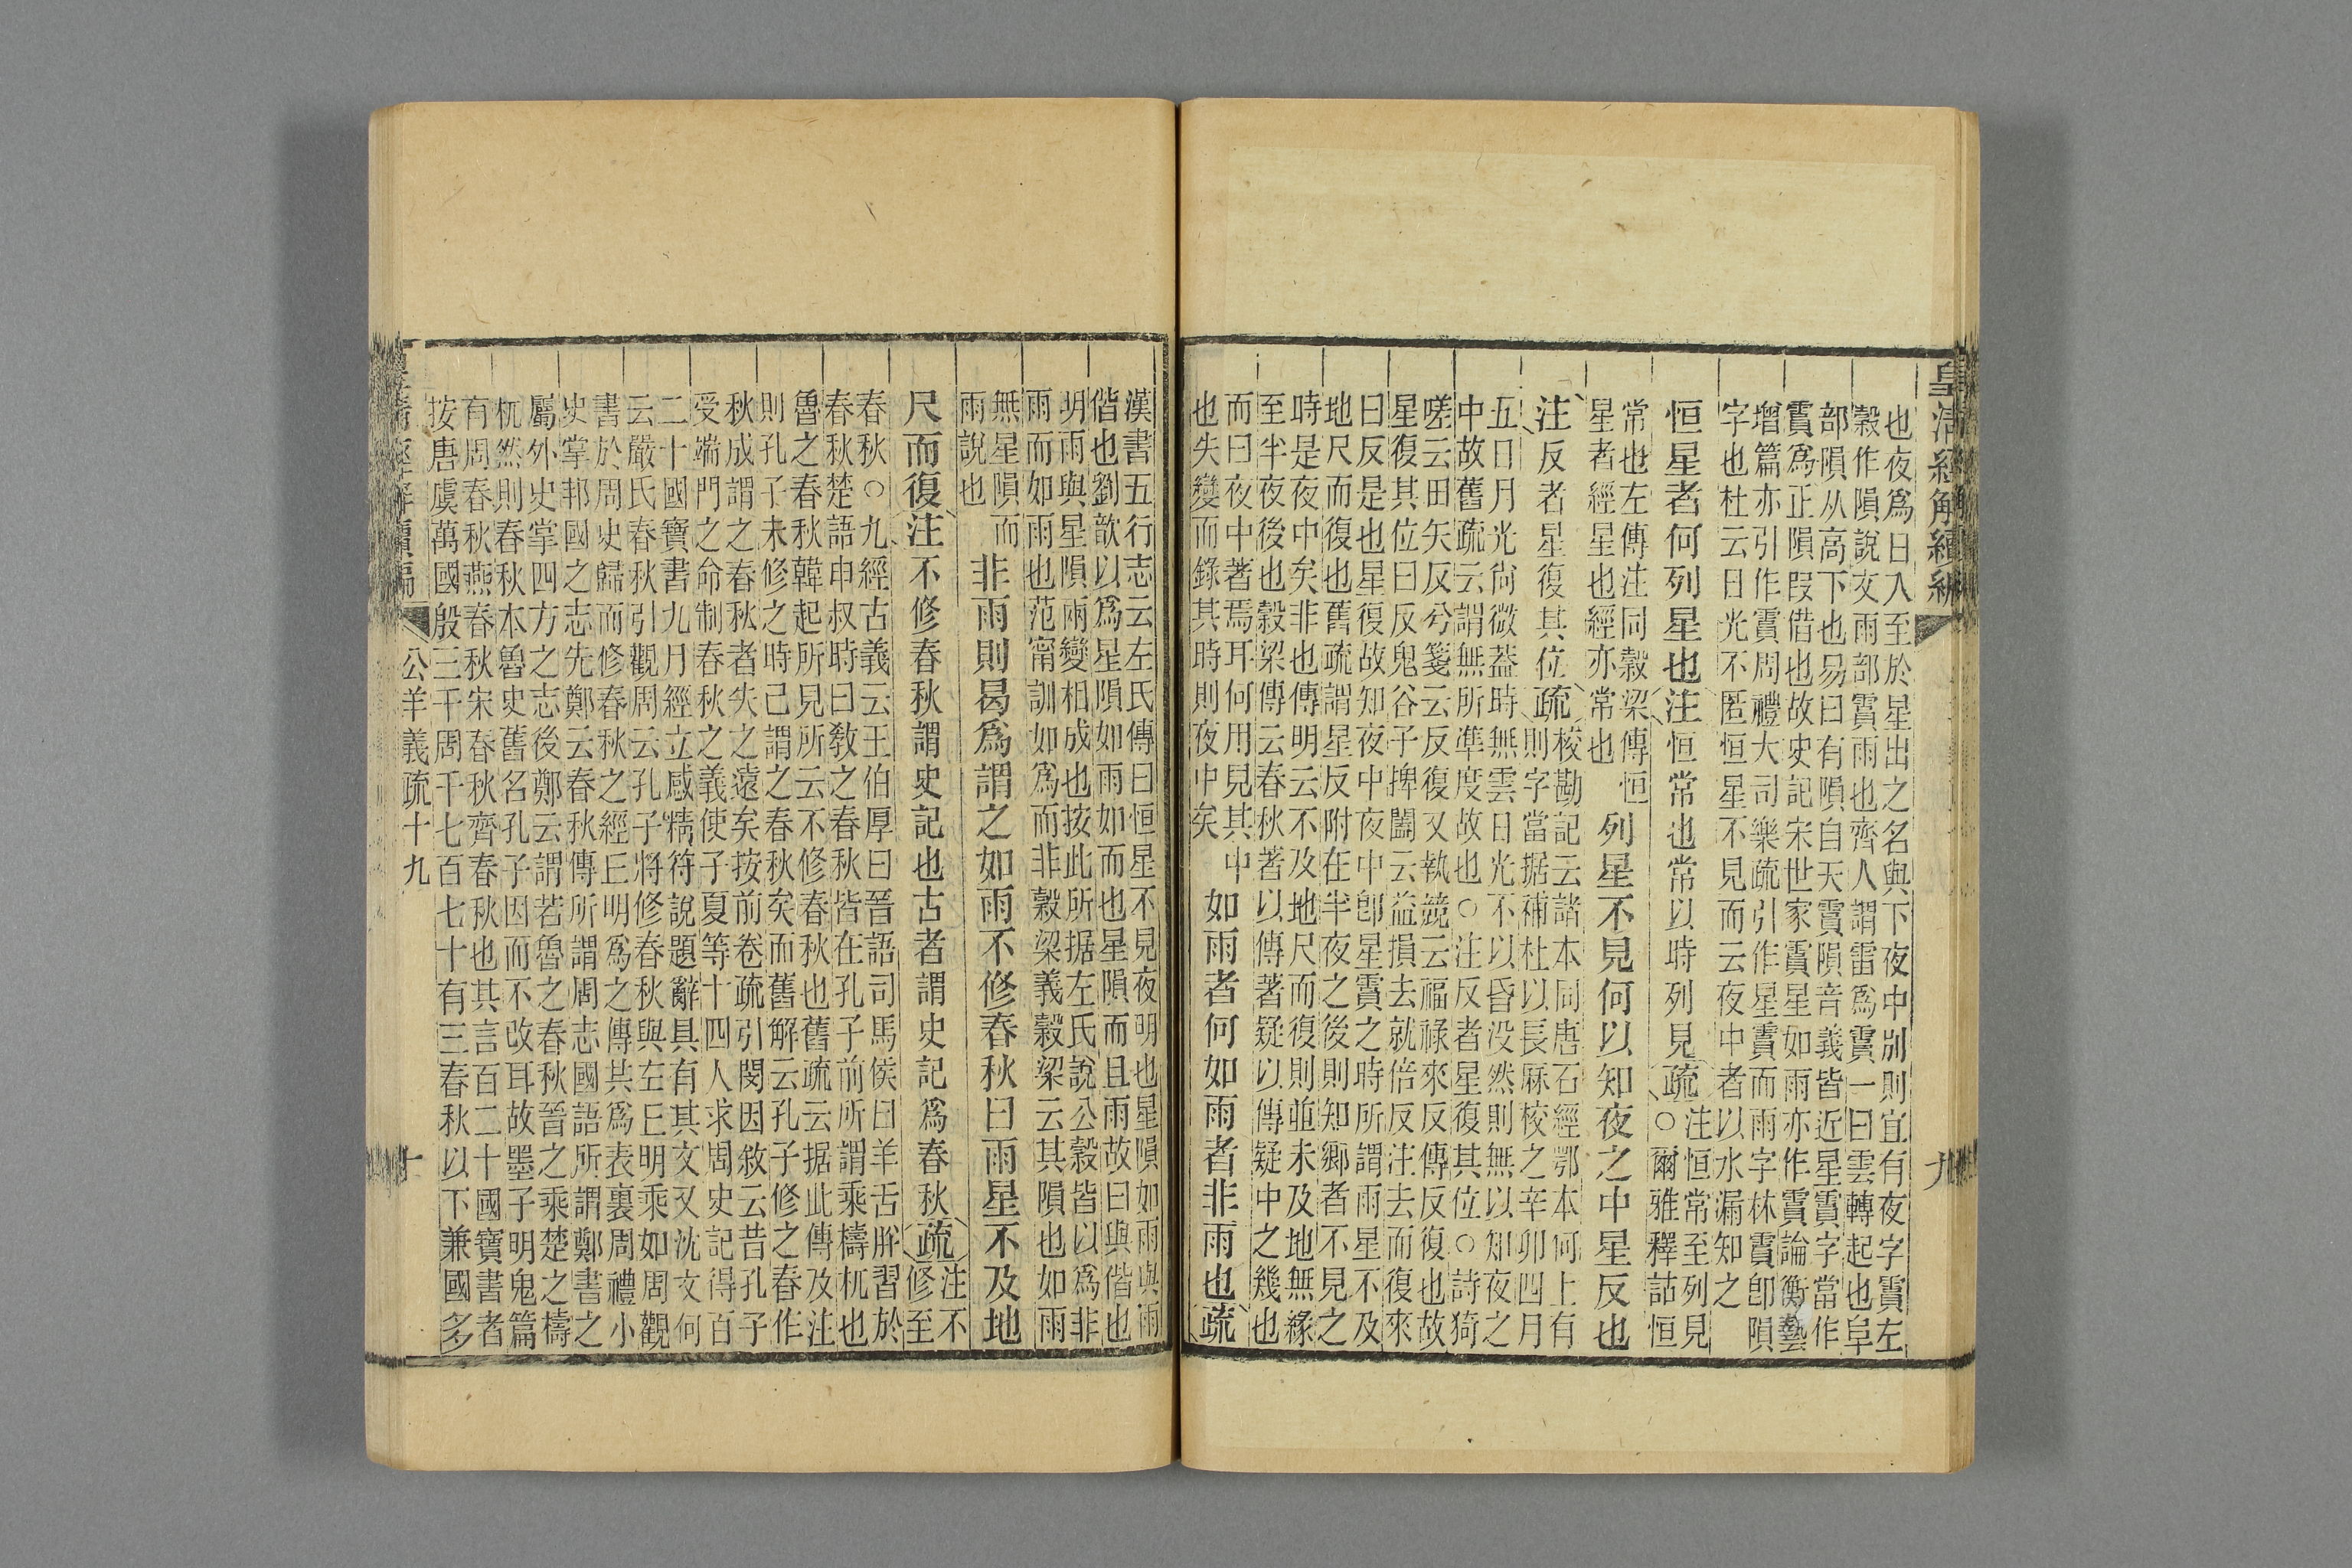 皇清經解續編
九
也夜爲日入至於星出之名與下夜中別則宜有夜字霣左
穀作隕說文雨部霣雨也齊人謂雷爲霣一曰雲轉起也阜
部隕从高下也易曰有隕自天霣隕音義皆近星霣字當作
霣爲正隕叚借也故史記宋世家霣星如雨亦作霣論衡藝
增篇亦引作霣周禮大司樂疏引作星霣而雨字林霣卽隕
字也杜云日光不匿恒星不見而云夜中者以水漏知之
恒星者何列星也注恒常也常以時列見疏注恒常至列見
○爾雅釋詁恒
常也左傳注同穀梁傳恒
星者經星也經亦常也
列星不見何以知夜之中星反也
注反者星復其位疏校勘記云諸本同唐石經鄂本何上有
則字當据補杜以長厤校之辛卯四月
五日月光尙微葢時無雲日光不以昏没然則無以知夜之
中故舊疏云謂無所準度故也○注反者星復其位○詩猗
嗟云田矢反兮箋云反復又執競云福祿來反傳反復也故
星復其位曰反鬼谷子捭闔云益損去就倍反注去而復來
曰反是也星復故知夜中夜中卽星霣之時所謂雨星不及
地尺而復也舊疏謂星反附在半夜之後則知鄕者不見之
時是夜中矣非也傳明云不及地尺而復則並未及地無緣
至半夜後也穀梁傳云春秋著以傳著疑以傳疑中之幾也
而曰夜中著焉耳何用見其中
也失變而錄其時則夜中矣
如雨者何如雨者非雨也疏
漢書五行志云左氏傳曰恒星不見夜明也星隕如雨與雨
偕也劉歆以爲星隕如雨如而也星隕而且雨故曰與偕也
明雨與星隕兩變相成也按此所据左氏說公穀皆以爲非
雨而如雨也范甯訓如爲而非穀梁義穀梁云其隕也如雨
無星隕而
雨說也
非雨則曷爲謂之如雨不修春秋曰雨星不及地
尺而復注不修春秋謂史記也古者謂史記爲春秋疏注不
修至
春秋○九經古義云王伯厚曰晉語司馬侯曰羊舌肸習於
春秋楚語申叔時曰敎之春秋皆在孔子前所謂乘檮杌也
魯之春秋韓起所見所云不修春秋也舊疏云据此傳及注
則孔子未修之時己謂之春秋矣而舊解云孔子修之春作
秋成謂之春秋者失之遠矣按前卷疏引閔因敘云昔孔子
受端門之命制春秋之義使子夏等十四人求周史記得百
二十國寶書九月經立感精符說題辭具有其文又沈文何
云嚴氏春秋引觀周云孔子將修春秋與左丘明乘如周觀
書於周史歸而修春秋之經丘明爲之傳共爲表裏周禮小
史掌邦國之志先鄭云春秋傳所謂周志國語所謂鄭書之
屬外史掌四方之志後鄭云謂若魯之春秋晉之乘楚之檮
杌然則春秋本魯史舊名孔子因而不改耳故墨子明鬼篇
有周春秋燕春秋宋春秋齊春秋也其言百二十國寶書者
按唐虞萬國殷三千周千七百七十有三春秋以下兼國多
皇清經解續編
公羊義疏十九
十